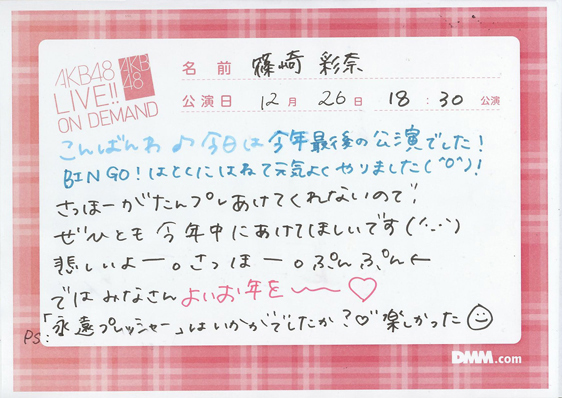 AKB48
LIVE!!
ON DEMAND
AKB
48
名前 篠崎 彩奈
公演日 12月 26日 18:30 公演
こんばんわ♪今日は今年最後の公演でした!
BINGO!はとくにはねて元気よくやりました(^0^)!
さっほーがたんプレあけてくれないので!
ぜひとも今年中にあけてほしいです(´-_-`)
悲しいよー。さっほー。ぷんぷん←
ではみなさんよいお年を〜〜♡
PS:「永遠プレッシャー」はいかがでしたか?♡゛楽しかった☺
DMM.com